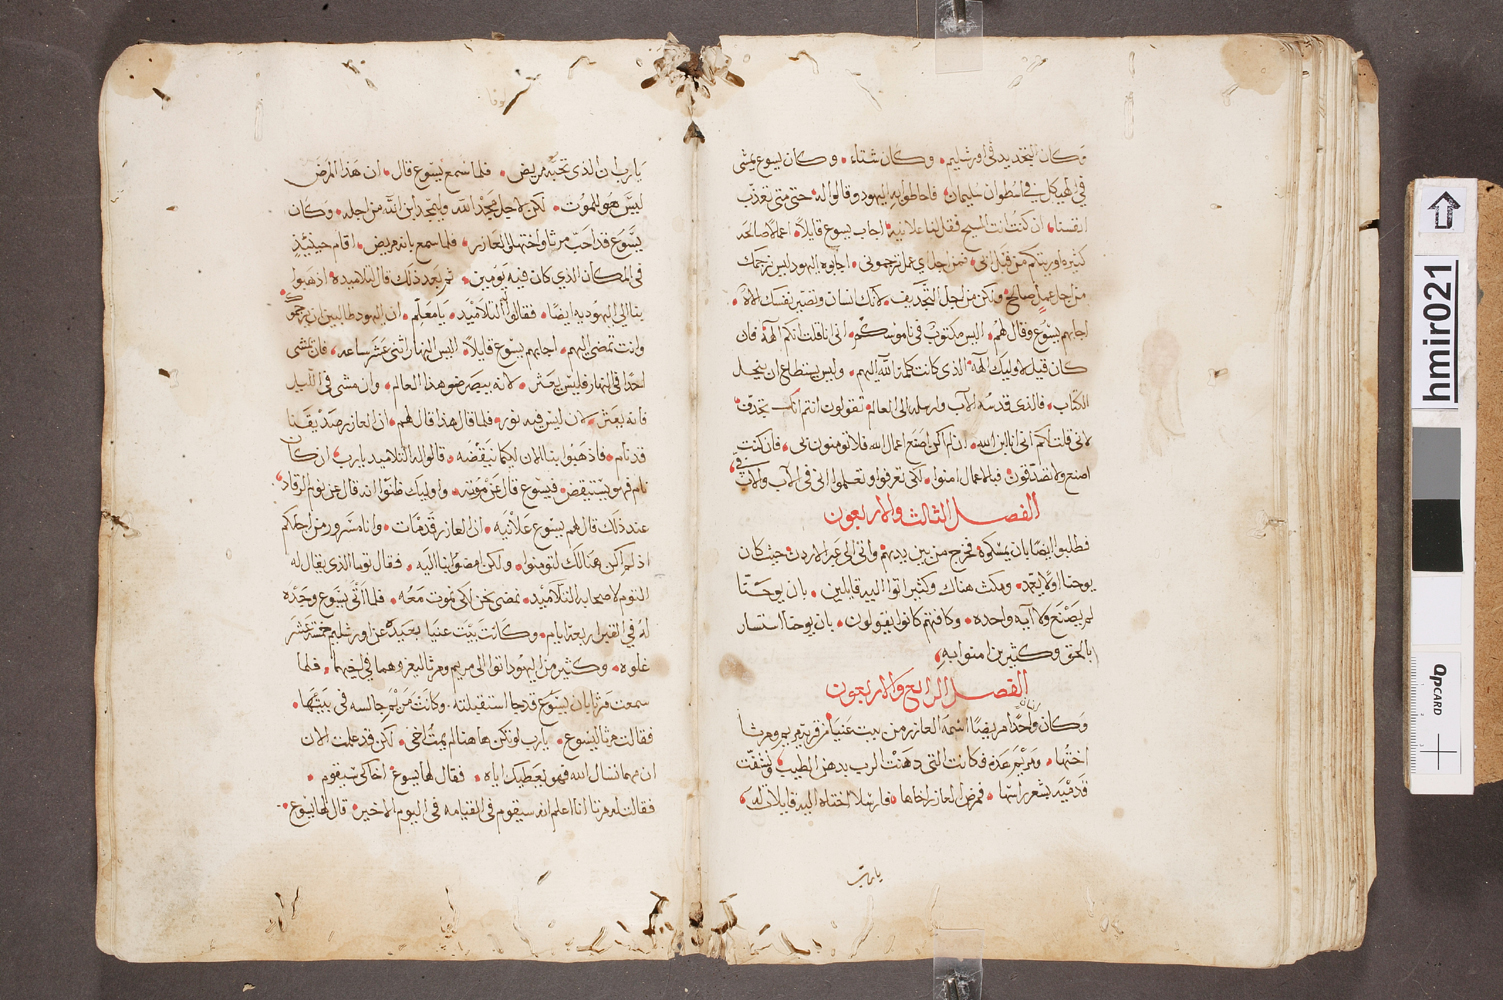 وكان التجديد في اورشليم وكان شتاء وكان يسوع يمشي
في الهيكل في اسطوان سليمان فاحاطوا به اليهود وقالوا له حتى متى تعذب
انفسنا ان كنت انت المسيح فقل لنا علانيه اجاب يسوع قايلاً اعمالاً صالحه
كثيره اوريتكم من قبل ابي فمن اجل اي عمل ترجموني اجابوه اليهود ليس نرجمك
من اجل عمل صالح ولكن من اجل التجديف لانك انسان وتصيّر نفسك الاهً
اجابهم يسوع وقال لهم اليس مكتوب في ناموسكم اني انا قلت انكم آلهة فان
كان قيل لاوليك آلهة الذي كانت كلمة الله اليهم وليس يستطاع ان ينحل
الكتاب فالذي قدسه الآب وارسله الى العالم تقولون انتم انك تجدف
لاني قلت لكم اني انا ابن الله ان لم اكن اصنع اعمال الله فلا تومنون بي فان كنت
اصنع ولا تصدقون فبالاعمال امنوا لكي تعرفوا وتعلموا اني في الآب والآب فيّ
الفصل الثالث والاربعون
فطلبوا ايضًا بان يمسكوه فخرج من بين يديهم واتى الى عبر الاردن حيث كان
يوحنا اولاً يعمّد ومكث هناك وكثير اتوا اليه قايلين بان يوحنا
لم يصنع ولا آيه واحده وكافتهم كانوا يقولون بان يوحنا استسار
بالحق وكثيرين امنوا به
الفصل الرابع والاربعون
وكان واحدًا مريضًا اسمه العازر من بيت عنيا من قرية مريم ومرثا
اختها ومريم هذه فكانت التي دهنت الرب بدهن الطيب ونشفت
قدميه بشعر راسها فمرض العازر اخاها فارسلا اختاه اليه قايلات له
يا رب
يا رب ان الذي تحبه مريض فلما سمع يسوع قال ان هذا المرض
ليس هو للموت لكن لاجل مجد الله وليتمجد ابن الله من اجله وكان
يسوع قد احب مرثا واختها والعازر فلما سمع بانه مريض اقام حينيذٍ
في المكان الذي كان فيه يومين ثم بعد ذلك قال لتلاميده اذهبوا
بنا الي اليهوديه ايضًا فقالوا له التلاميد يا معلم ان اليهود طالبين ان يرجموك
وانت تمضي اليهم اجابهم يسوع قايلاً اليس النهار اثني عشر ساعه فان مشى
احدًا في النهار فليس يعثر لانه يبصر ضو هذا العالم وان مشى في الليل
فانه يعثر لان ليس فيه نور فلما قال هذا قال لهم ان العازر صديقنا
قد نام فاذهبوا بنا الان لكيما نيقضه قالوا له التلاميد يا رب ان كان
نام فهو يستيقض فيسوع قال عن موته واوليك ظنوا انه قال عن نوم الرقاد
عند ذلك قال لهم يسوع علانيه ان العازر قد مات وانا مسرور من اجلكم
اذ لم اكن هنالك لتومنوا ولكن امضوا بنا اليه فقال توما الذي يقال له
التوم لاصحابه التلاميد نمضي نحن لكي نموت معه فلما اتى يسوع وجده
له في القبر اربعة ايام وكانت بيت عنيا بعيده عن اورشليم خمسة عشر
غلوه وكثير من اليهود اتوا الى مريم ومرثا ليعزوهما في اخيهما فلما
سمعت مرثا بان يسوع قد جا استقبلته وكانت مريم جالسه في بيتها
فقالت مرثا ليسوع يا رب لو تكن هاهنا لم يمت اخي لكن قد علمت الان
ان مهما تسال الله فهو يعطيك اياه فقال لها يسوع اخاكي سيقوم
فقالت له مرثا انا اعلم انه سيقوم في القيامه في اليوم الاخير قال لها يسوع
hmir021
CARD